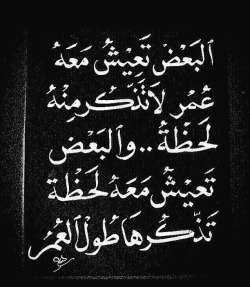 البَعْضْ تَعِيْشُ مَعَهُ
عُمْر لاَتَذْكُر مِنْهُ
لَحْظَةُ .. وَالبَعْض
تَعِيْشُ مَعَهُ لَحْظَة
تَذْكُرهَا طُولْ العُمُرْ